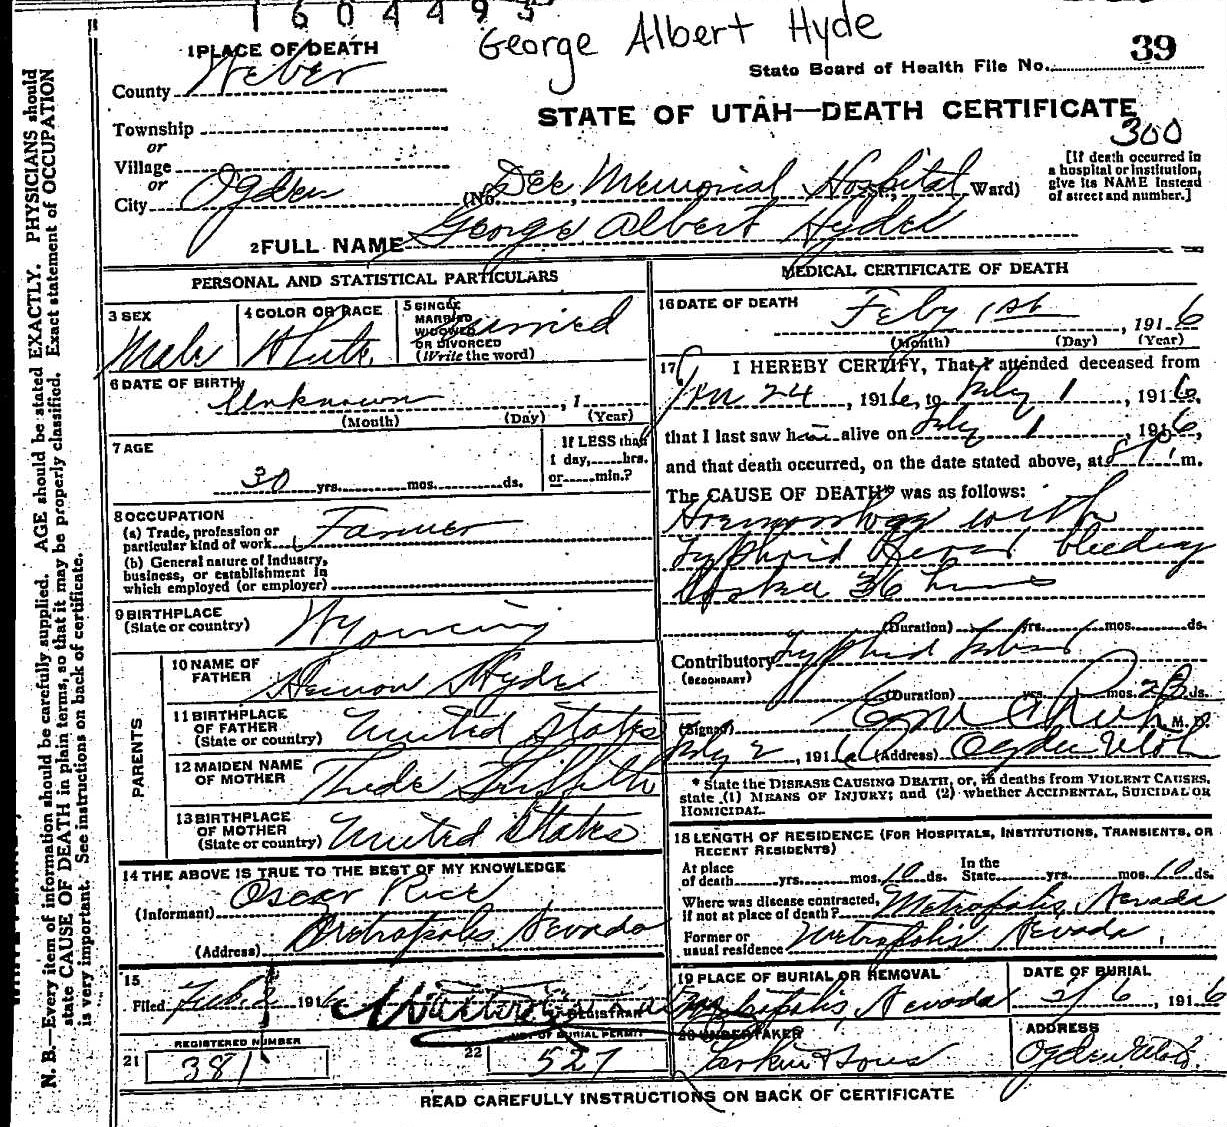 1604493
George Albert Hyde
39
State Board of Health File No.
STATE OF UTAH—DEATH CERTIFICATE
300
1 PLACE OF DEATH
County Weber
Township
or
Village
or
City Ogden
(No. Dee Memorial Hospital St.; Ward)
[If death occurred in
a hospital or institution,
give its NAME instead
of street and number.]
2 FULL NAME George Albert Hyde
PERSONAL AND STATISTICAL PARTICULARS
3 SEX
Male
4 COLOR OR RACE
White
5 SINGLE
MARRIED
WIDOWED
OR DIVORCED
(Write the word)
Married
6 DATE OF BIRTH
Unknown , 1
(Month) (Day) (Year)
7 AGE
30 yrs. mos. ds.
If LESS than
1 day, hrs.
or min.?
8 OCCUPATION
(a) Trade, profession or
particular kind of work Farmer
(b) General nature of industry,
business, or establishment in
which employed (or employer)
9 BIRTHPLACE
(State or country) Wyoming
PARENTS
10 NAME OF
FATHER Hyde
11 BIRTHPLACE
OF FATHER
(State or country) United States
12 MAIDEN NAME
OF MOTHER Griffith
13 BIRTHPLACE
OF MOTHER
(State or country) United States
14 THE ABOVE IS TRUE TO THE BEST OF MY KNOWLEDGE
(Informant) Oscar Rice
(Address) Metropolis Nevada
15
Filed Feb. 2 1916
REGISTRAR
REGISTERED NUMBER
21 381
NO. OF BURIAL PERMIT
22 527
MEDICAL CERTIFICATE OF DEATH
16 DATE OF DEATH
Feby 1st , 1916
(Month) (Day) (Year)
17 I HEREBY CERTIFY, That I attended deceased from
Jan 24 , 1916, to Feby 1 , 1916,
that I last saw him alive on Feby 1 , 1916,
and that death occurred, on the date stated above, at 8 P. m.
The CAUSE OF DEATH* was as follows:
with
Typhoid bleeding
36 hrs
(Duration) yrs. mos. ds.
Contributory Typhoid
(SECONDARY)
(Duration) yrs. mos. 23 ds.
(Signed) M. D.
Feby 2, 1916 (Address) Ogden Utah
* State the DISEASE CAUSING DEATH, or, in deaths from VIOLENT CAUSES,
state (1) MEANS OF INJURY; and (2) whether ACCIDENTAL, SUICIDAL OR
HOMICIDAL.
18 LENGTH OF RESIDENCE (FOR HOSPITALS, INSTITUTIONS, TRANSIENTS, OR
RECENT RESIDENTS)
At place
of death yrs. mos. 10 ds.
In the
State yrs. mos. 10 ds.
Where was disease contracted,
if not at place of death? Metropolis, Nevada
Former or
usual residence Metropolis Nevada
19 PLACE OF BURIAL OR REMOVAL
Metropolis, Nevada
DATE OF BURIAL
2/6 , 1916
20 UNDERTAKER
Larkin & Sons
ADDRESS
Ogden Utah
READ CAREFULLY INSTRUCTIONS ON BACK OF CERTIFICATE
N. B.—Every item of information should be carefully supplied. AGE should be stated EXACTLY. PHYSICIANS should
state CAUSE OF DEATH in plain terms, so that it may be properly classified. Exact statement of OCCUPATION
is very important. See instructions on back of certificate.